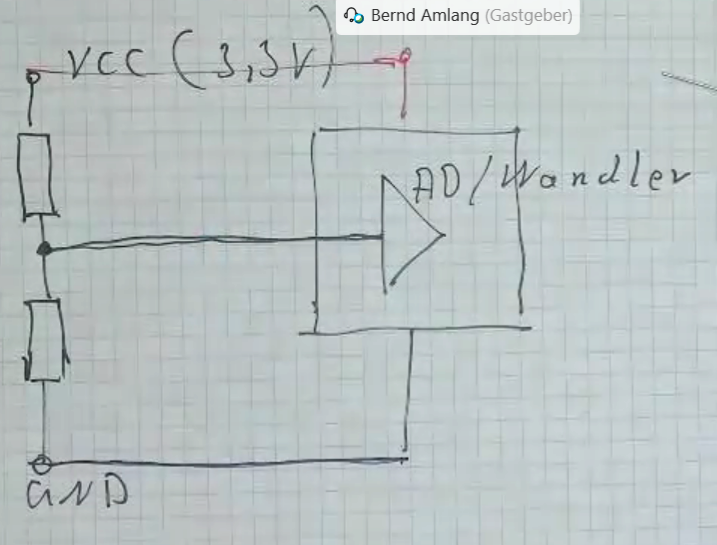 Bernd Amlang (Gastgeber)
VCC (3,3V)
AD/Wandler
GND